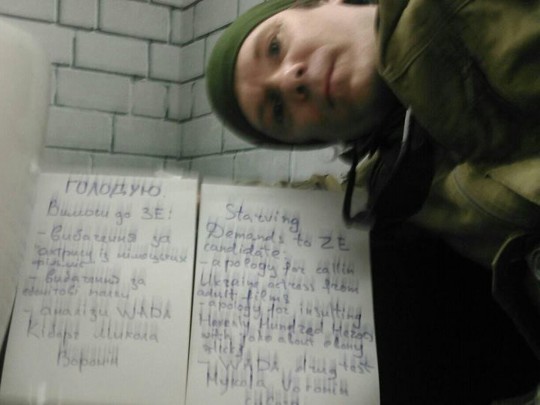 ГОЛОДУЮ
Вимоги до ЗЕ:
- вибачення за
актрису із німецьких
фільмів
- вибачення за
- аналізи WADA
Кіборг Микола
Воронін
Starving
Demands to ZE
candidate:
- apology for callin
Ukraine actress from
adult films
- apology for insulting
Heavenly Hundred Heroes
with joke about
sticks
- WADA drug test
Mykola Voronin